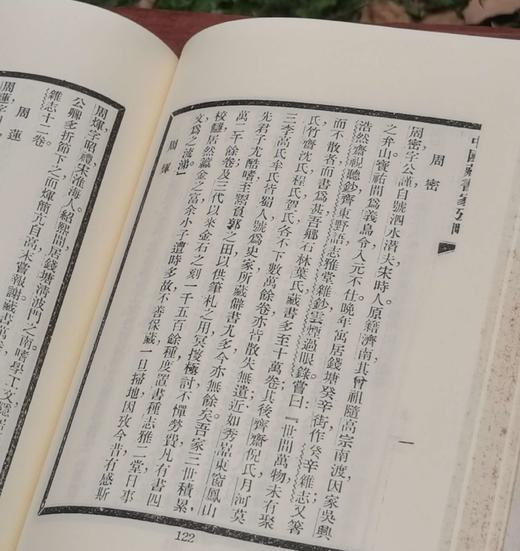 中國藏書家攷略
周密
周密,字公謹,自號泗水潛夫,宋時人。原籍濟南,其曾祖隨高宗南渡,因家吳興
之弁山。寶祐間爲義烏令,入元不仕。晚年寓居錢塘癸辛街,作癸辛雜志,又箸
浩然齋視聽鈔,齊東野語,志雅堂雜鈔,雲煙過眼錄。嘗曰:『世間萬物,未有聚
而不散者,而書爲甚。吾鄉石林葉氏藏書多至十萬卷,其後齊齋倪氏,月河莫
氏,竹齋沈氏,程氏,賀氏,各不下數萬餘卷,亦皆散失無遺。近如秀喦,東窗,鳳山
三李,高氏,牟氏,皆蜀人,號爲史家,所藏僻書尤多,今亦無餘矣。吾家三世積累,
先君子尤酷嗜,至鬻負郭之田以供筆札之用,冥搜極討,不憚勞費,凡有書四
萬二千餘卷,及三代以來金石之刻一千五百餘種,庋置書種志雅二堂,日事
校讎,居然籯金之富。余小子遭時多故,不善保藏,一旦掃地。因攷今昔,有感斯
文,爲之流涕。』
周煇
一
122
周煇,字昭禮,宋淮海人。紹熙間居錢塘清波門之南,嗜學工文
公卿多折節下之,而煇簡亢自高,未嘗報謝。藏書萬
雜志十二卷。
周蓮
周蓮,字